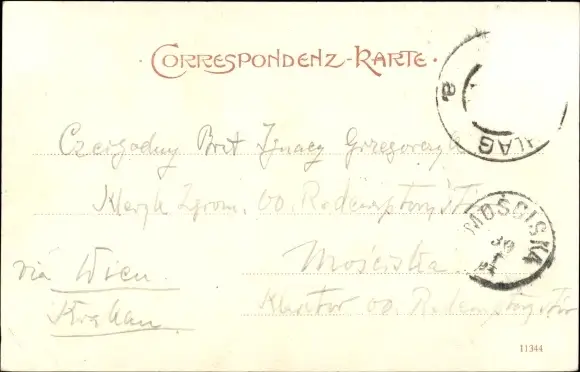 CORRESPONDENZ-KARTE.
LAG
a
Czcigodny Brat Ignacy Grzegorczyk
Kleryk Zgrom. OO. Redemptorystów
MOŚCISKA
30
via Wien. Mościska
Krakau Klasztor OO. Redemptorystów
11344